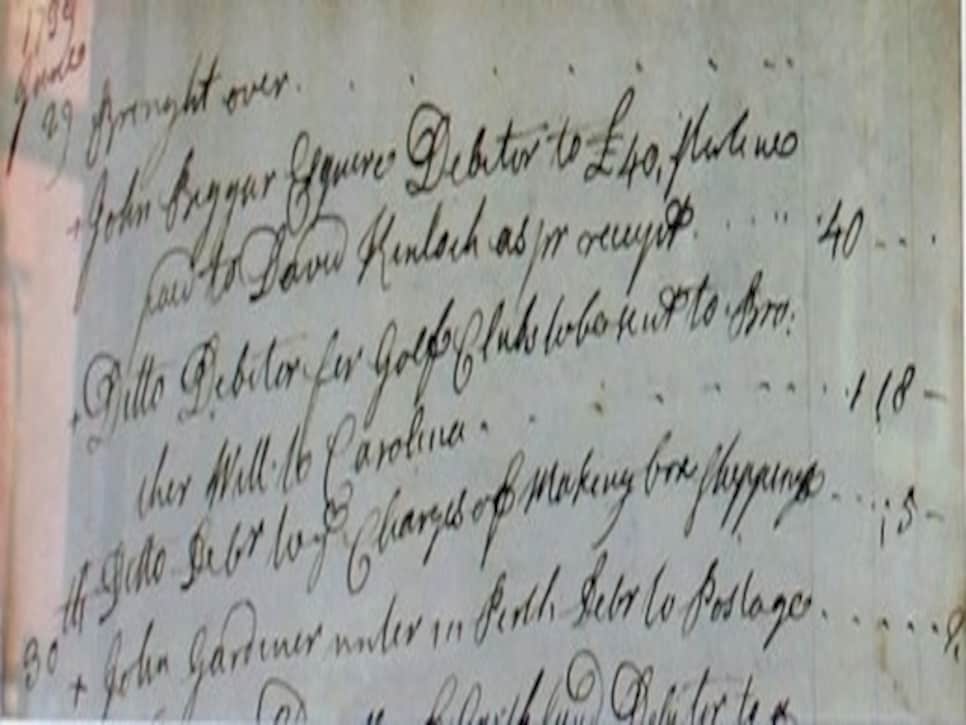 1739
June
29 Brought over
John Biggar Esquire Debitor to £40,
paid to David Kinloch as pr receipt 40
Ditto Debitor for Golf Clubs to be sent to Bro:
ther Will to Carolina 1 18
Ditto Debr to ye Charges of making box shipping 5
30 John Gardiner in Perth Debr to Postage
Debitor to